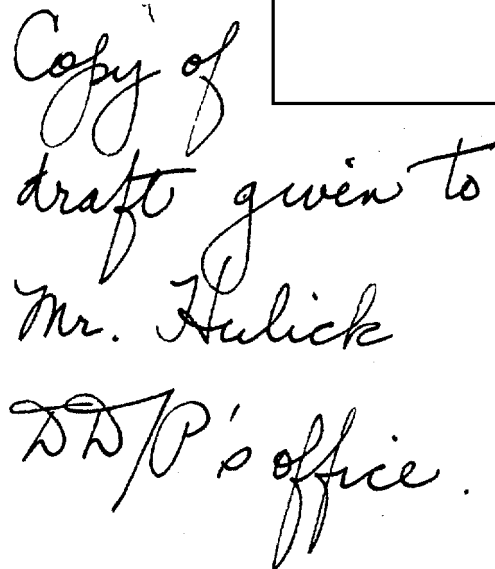 Copy of
draft given to
Mr. Hulick
DD/P's office.